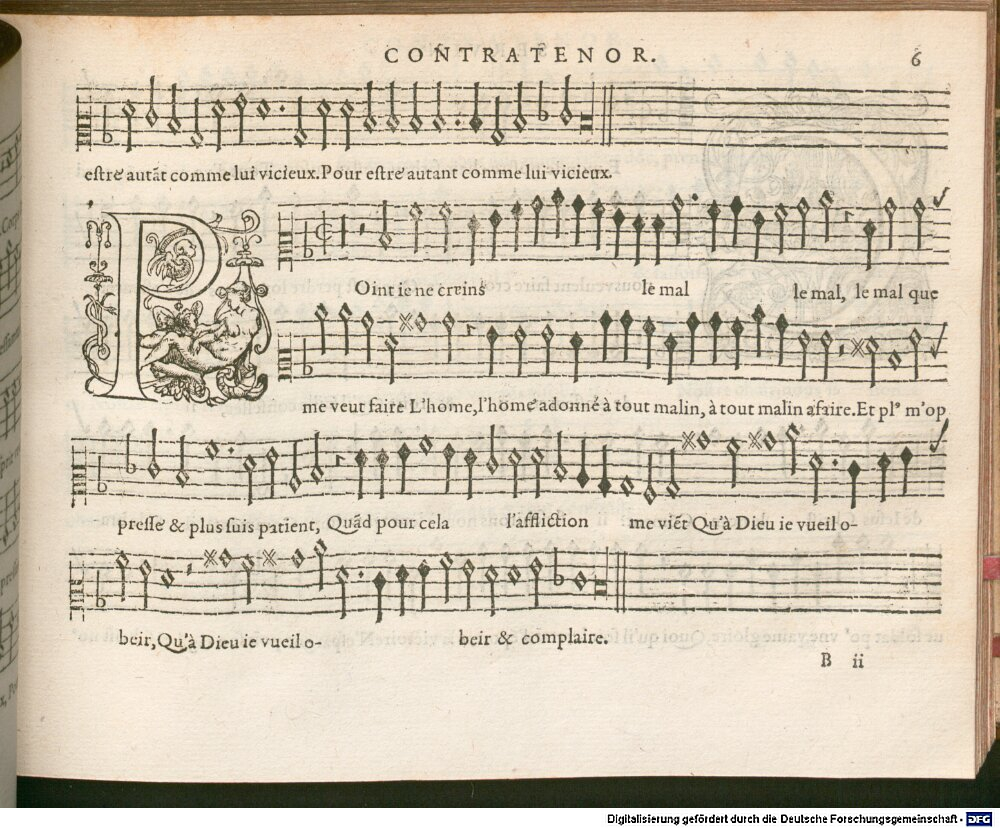 CONTRATENOR.
6
estre autãt comme lui vicieux. Pour estre autant comme lui vicieux.
P
Oint ie ne creins le mal le mal, le mal que
me veut faire L'home, l'home adonné à tout malin, à tout malin afaire. Et pl' m'op
presse & plus suis patient, Quãd pour cela l'affliction me viẽt Qu'à Dieu ie vueil o-
beir, Qu'à Dieu ie vueil o- beir & complaire.
B ii
Digitalisierung gefördert durch die Deutsche Forschungsgemeinschaft - DFG